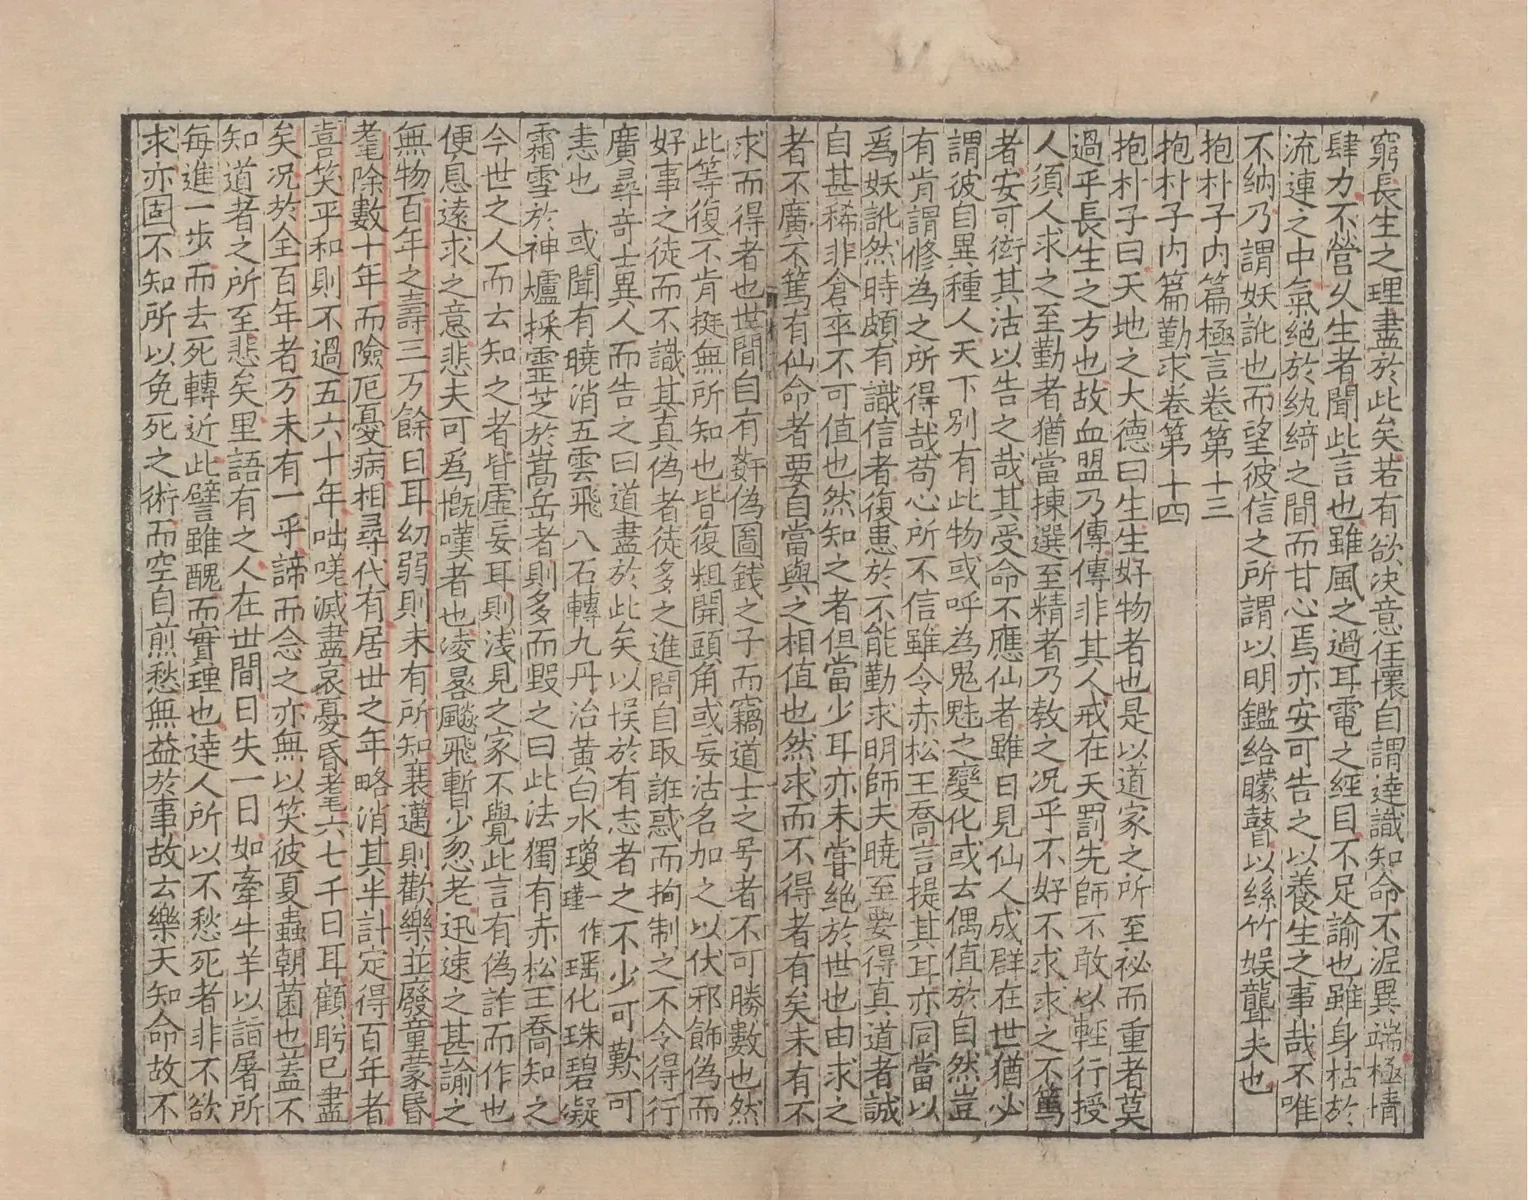 窮長生之理盡於此矣若有欲决意任懷自謂達識知命不泥異端極情
肆力不營久生者聞此言也雖風之過耳電之經目不足諭也雖身枯於
流連之中氣絕於紈綺之間而甘心焉亦安可告之以養生之事哉不唯
不納乃謂妖訛也而望彼信之所謂以明鑑給矇瞽以絲竹娱聾夫也
抱朴子内篇極言卷第十三
抱朴子内篇勤求卷第十四
抱朴子曰天地之大德曰生生好物者也是以道家之所至祕而重者莫
過乎長生之方也故血盟乃傳傳非其人戒在天罰先師不敢以輕行授
人須人求之至勤者猶當揀選至精者乃教之况乎不好不求求之不篤
者安可衒其沽以告之哉其受命不應仙者雖日見仙人成群在世猶必
謂彼自異種人天下别有此物或呼為鬼魅之變化或云偶值於自然豈
有肯謂修為之所得哉苟心所不信雖令赤松王喬言提其耳亦同當以
爲妖訛然時頗有識信者復患於不能勤求明師夫曉至要得真道者誠
自甚稀非倉卒不可值也然知之者但當少耳亦未甞絕於世也由求之
者不廣不篤有仙命者要自當與之相值也然求而不得者有矣未有不
求而得者也世間自有姧偽圖錢之子而竊道士之号者不可勝數也然
此等復不肯挺無所知也皆復粗開頭角或妄沽名加之以伏邪飾偽而
好事之徒而不識其真偽者徒多之進問自取誑惑而拘制之不令得行
廣尋竒士異人而告之曰道盡於此矣以悮於有志者之不少可歎可
恚也 或聞有曉消五雲飛八石轉九丹冶黄白水瓊瑾一作瑶化珠碧凝
霜雪於神爐採靈芝於嵩岳者則多而毀之曰此法獨有赤松王喬知之
今世之人而云知之者皆虚妄耳則浅見之家不覺此言有偽詐而作也
便息遠求之意悲夫可爲慨嘆者也凌晷飈飛暫少忽老迅速之甚諭之
無物百年之壽三万餘日耳幼弱則未有所知衰邁則歡樂並廢童蒙昏
耄除數十年而險厄憂病相尋代有居世之年略消其半計定得百年者
喜笑乎和則不過五六十年咄嗟滅盡哀憂昏耄六七千日耳顧眄已盡
矣况於全百年者万未有一乎諦而念之亦無以笑彼夏蟲朝菌也盖不
知道者之所至悲矣里語有之人在世間日失一日如牽牛羊以詣屠所
毎進一步而去死轉近此譬雖醜而實理也達人所以不愁死者非不欲
求亦固不知所以免死之術而空自煎愁無益於事故云樂天知命故不